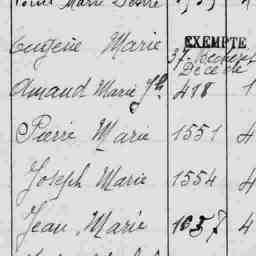 Marie Désiré
Eugène Marie EXEMPTE
37
Décédé
Amand Marie Jh 418 1
Pierre Marie 1551 4
Joseph Marie 1554 4
Jean Marie 1657 4